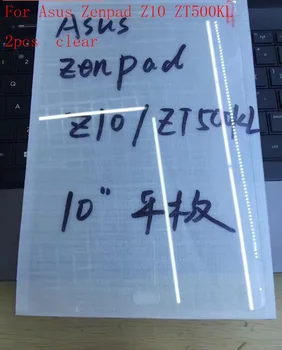 For Asus Zenpad Z10 ZT500KL
2pcs clear
Asus
Zenpad
Z10/ZT500KL
10" 平板